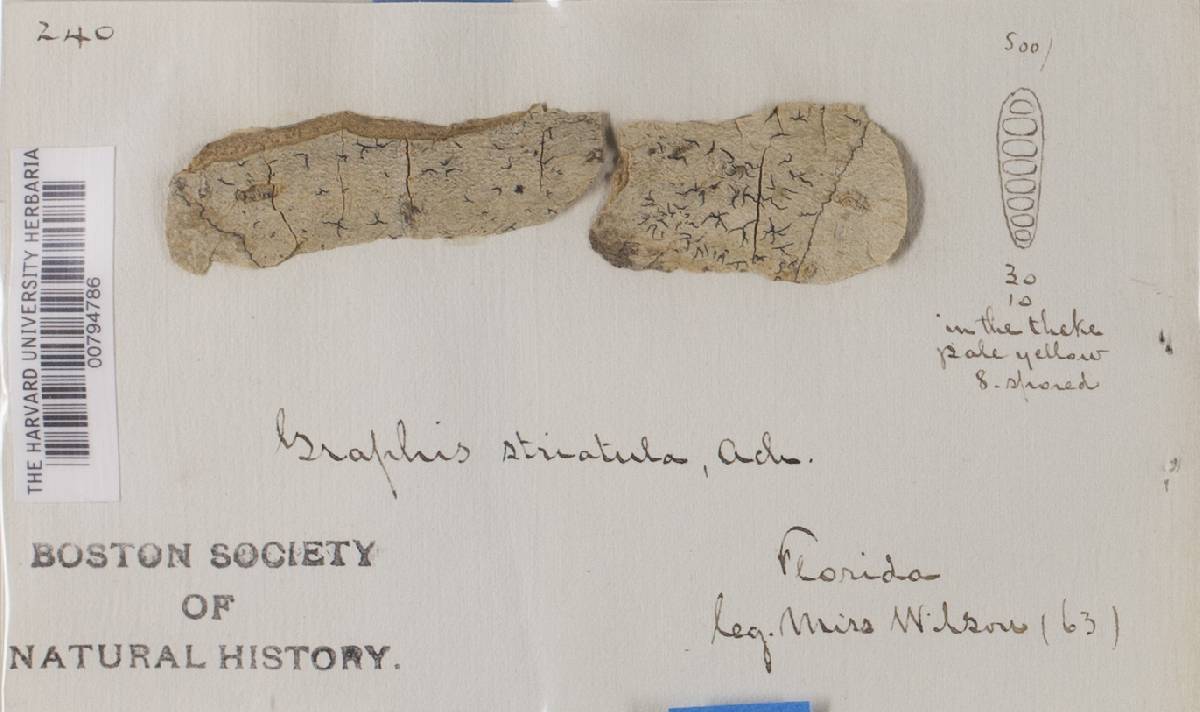 240
500/
THE HARVARD UNIVERSITY HERBARIA
00794786
30
10
in the theke
pale yellow
8-spored
Graphis striatula, Ach.
Florida
leg. Miss Wilson (63)
BOSTON SOCIETY
OF
NATURAL HISTORY.